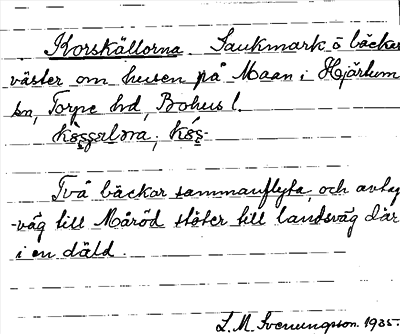 Korskällorna. Sankmark ö bäcker
väster om husen på Maan i Hjärtum
sn, Torpe hd, Bohus l.
Två bäckar sammanflyta, och avtag
-väg till Måröd stöter till landsväg där
i en däld.
L. M. Svenungsson. 1935.